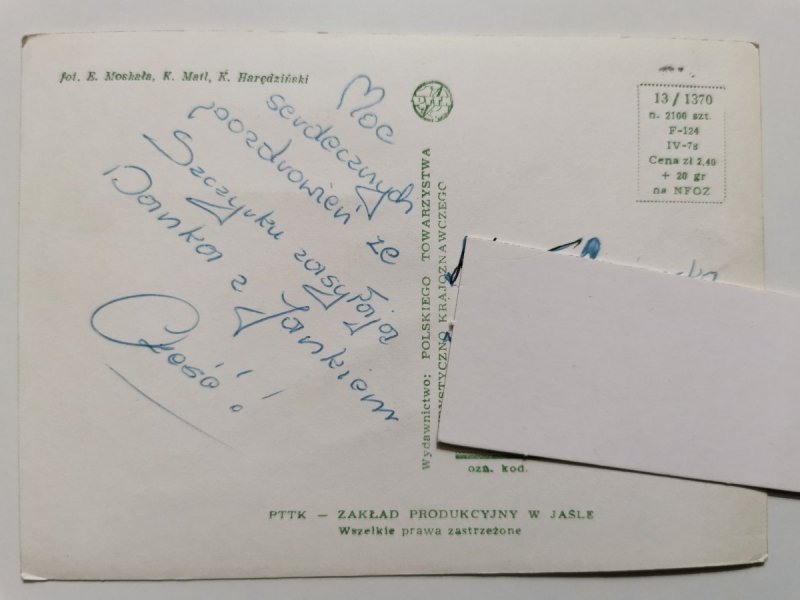 fot. E. Moskała, K. Matl, K. Harędziński
Moc
serdecznych
pozdrowień ze
Szczyrku zasyłają
Danka z Jankiem
Cześć!
Wydawnictwo: POLSKIEGO TOWARZYSTWA
KRAJOZNAWCZEGO
13/1370
n. 2100 szt.
F-124
IV-78
Cena zł 2,40
+ 20 gr
na NFOZ
ozn. kod.
PTTK — ZAKŁAD PRODUKCYJNY W JAŚLE
Wszelkie prawa zastrzeżone